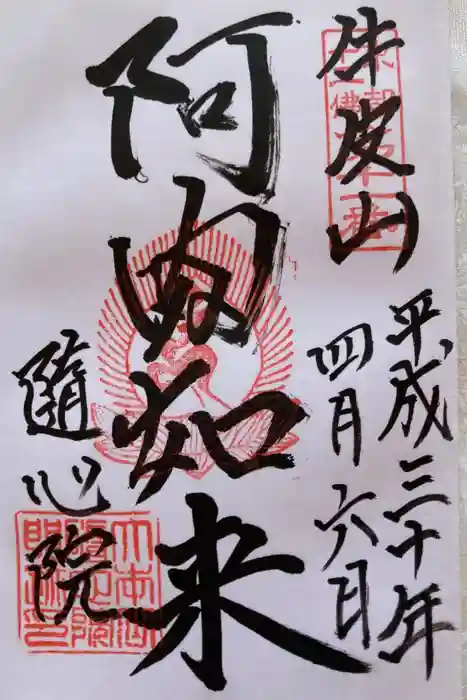 牛皮山
平成三十年
四月六日
阿閦如来
隨心院